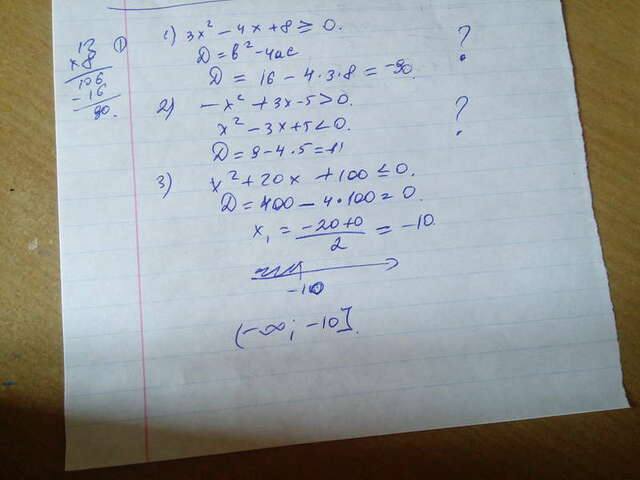 13
× 8
106
- 16
90.
① 1) 3x² - 4x + 8 ≥ 0.
D = b² - 4ac
D = 16 - 4·3·8 = -90. ?
2) -x² + 3x - 5 > 0.
x² - 3x + 5 < 0.
D = 9 - 4·5 = -11 ?
3) x² + 20x + 100 ≤ 0.
D = 400 - 4·100 = 0.
x₁ = -20+0/2 = -10.
-10
(-∞; -10].